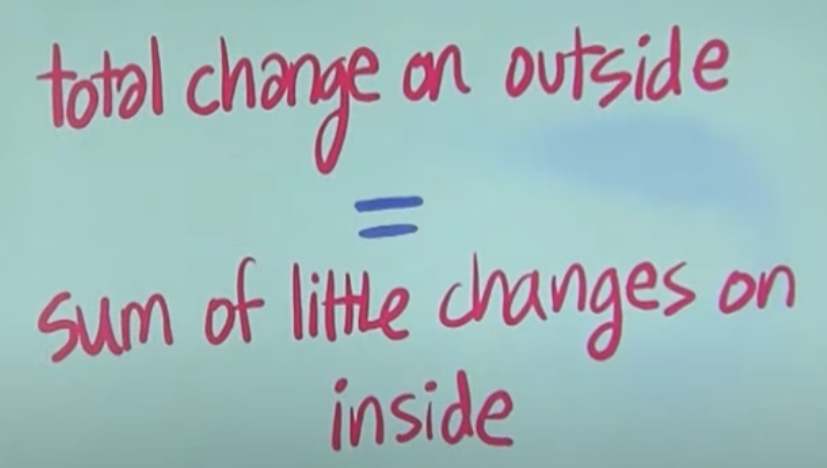 total change on outside
=
sum of little changes on
inside